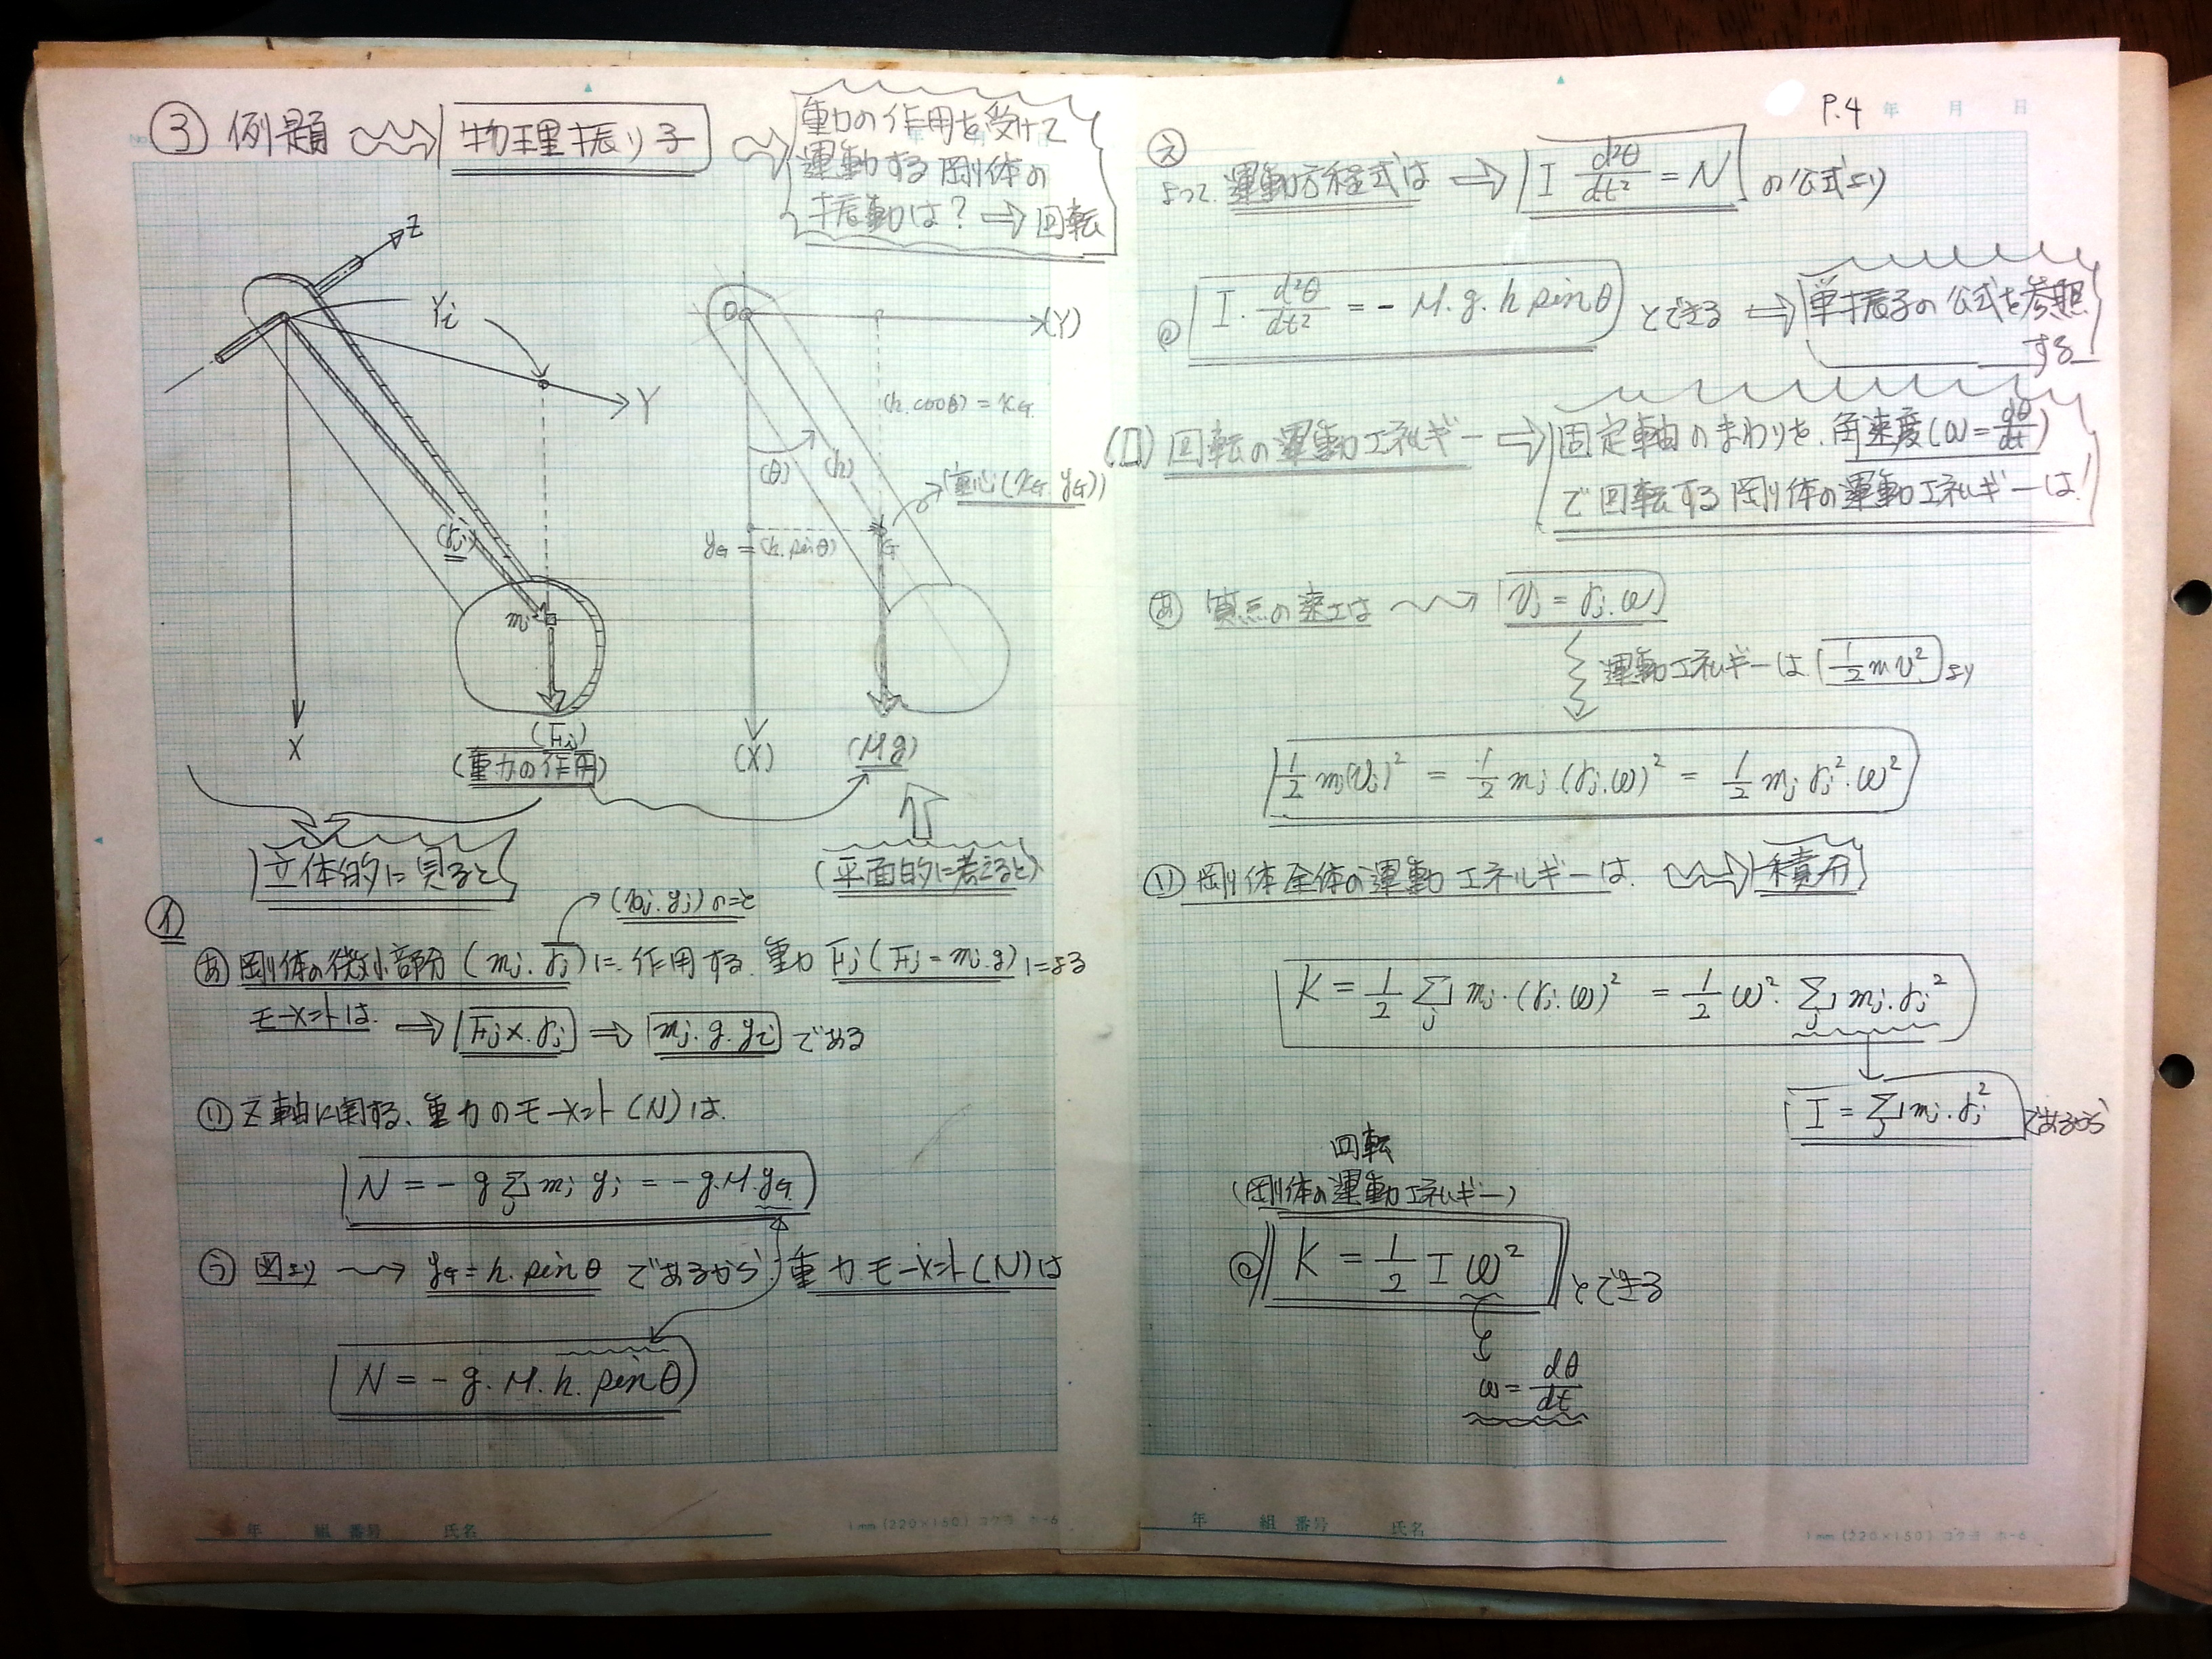 ③ 例題 物理振り子
重力の作用を受けて
運動する剛体の
振動は? ⇒ 回転
Z
Yi
Y
X
(rj)
mj
(Fj)
(重力の作用)
O
(Y)
(h.cosθ) = xG
(θ)
(h)
重心(xG.yG)
yG = (h.sinθ)
G
(X)
(Mg)
立体的に見ると
(平面的に考えると)
イ
(xj.yj)のこと
あ 剛体の微小部分(mj.rj)に作用する.重力 Fj(Fj=mj.g)による
モーメントは. ⇒ Fj×rj ⇒ mj.g.yi である
い Z軸に関する.重力のモーメント(N)は.
N = - g Σj mj yj = - g.M.yG
う 図より yG = h.sinθ であるから 重力モーメント(N)は
N = - g.M.h.sinθ
P.4
年 月 日
え
よって.運動方程式は ⇒ I d²θ/dt² = N の公式より
I. d²θ/dt² = - M.g.h sinθ とできる ⇒ 単振子の公式を参照
する
(ロ) 回転の運動エネルギー ⇒ 固定軸のまわりを.角速度(ω=dθ/dt)
で回転する剛体の運動エネルギーは
あ 質点の速さは vj = rj.ω
運動エネルギーは 1/2 mv² より
1/2 mj(vj)² = 1/2 mj (rj.ω)² = 1/2 mj rj².ω²
い 剛体全体の運動エネルギーは. 積分
K = 1/2 Σj mj.(rj.ω)² = 1/2 ω². Σj mj.rj²
I = Σj mj.rj² であるから
回転
(剛体の運動エネルギー)
K = 1/2 I ω² とできる
ω = dθ/dt
年 組 番号 氏名
1mm(220×150) コクヨ ホ-6
年 組 番号 氏名
1mm(220×150) コクヨ ホ-6